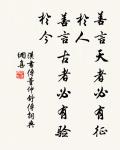 善言天者必有征
於人
善言古者必有验
於今
漢書傅董仲舒傅詞典
網